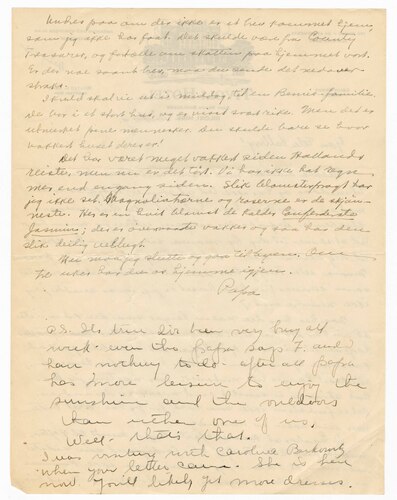 paa om der ikke er et brev kommet hjem,
som jeg ikke har faat. Det skulde være fra County
Treasurer, og fortælle om skatten paa hjemmet vort.
Er der noe saant brev, maa du sende det
I kveld skal vi til en familie.
De bor i et stort hus, og er visst svært rike. Men det er
utmerket pene mennesker. Du skulde bare se hvor
vakkert huset deres er!
Det har været meget vakkert siden Hallands
reiste, men nu er det tørt. Vi har ikke hat regn
mer end engang siden. Slik blomsterpragt har
jeg ikke set. Magnoliatrærne og roserne er de skjøn-
neste. Her er en hvit blomst de kalder Confederate
Jasmine; den er overmaate vakker og saa har den
slik deilig vellugt.
Her maa jeg slutte og gaa til byen. Om
uker har du os hjemme igjen.
Papa
P.S. It's true I've been very busy all
week even tho papa says F. and I
have nothing to do. after all papa
has more leisure to enjoy the
sunshine and the outdoors
than either one of us.
Well - that's that.
I was visiting with Caroline
when your letter came. She is here
now. You'll likely get more dresses.